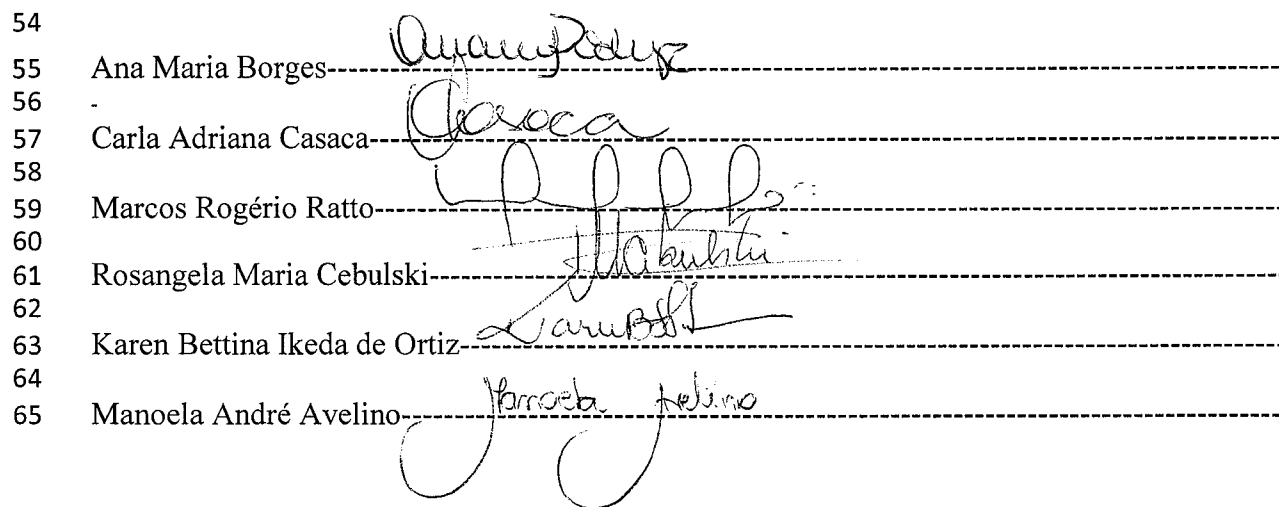 54
55 Ana Maria Borges--------------------
56 -
57 Carla Adriana Casaca-------------------- Casaca
58
59 Marcos Rogério Ratto--------------------
60
61 Rosangela Maria Cebulski--------------------
62
63 Karen Bettina Ikeda de Ortiz--------------------
64
65 Manoela André Avelino-------------------- Manoela Avelino